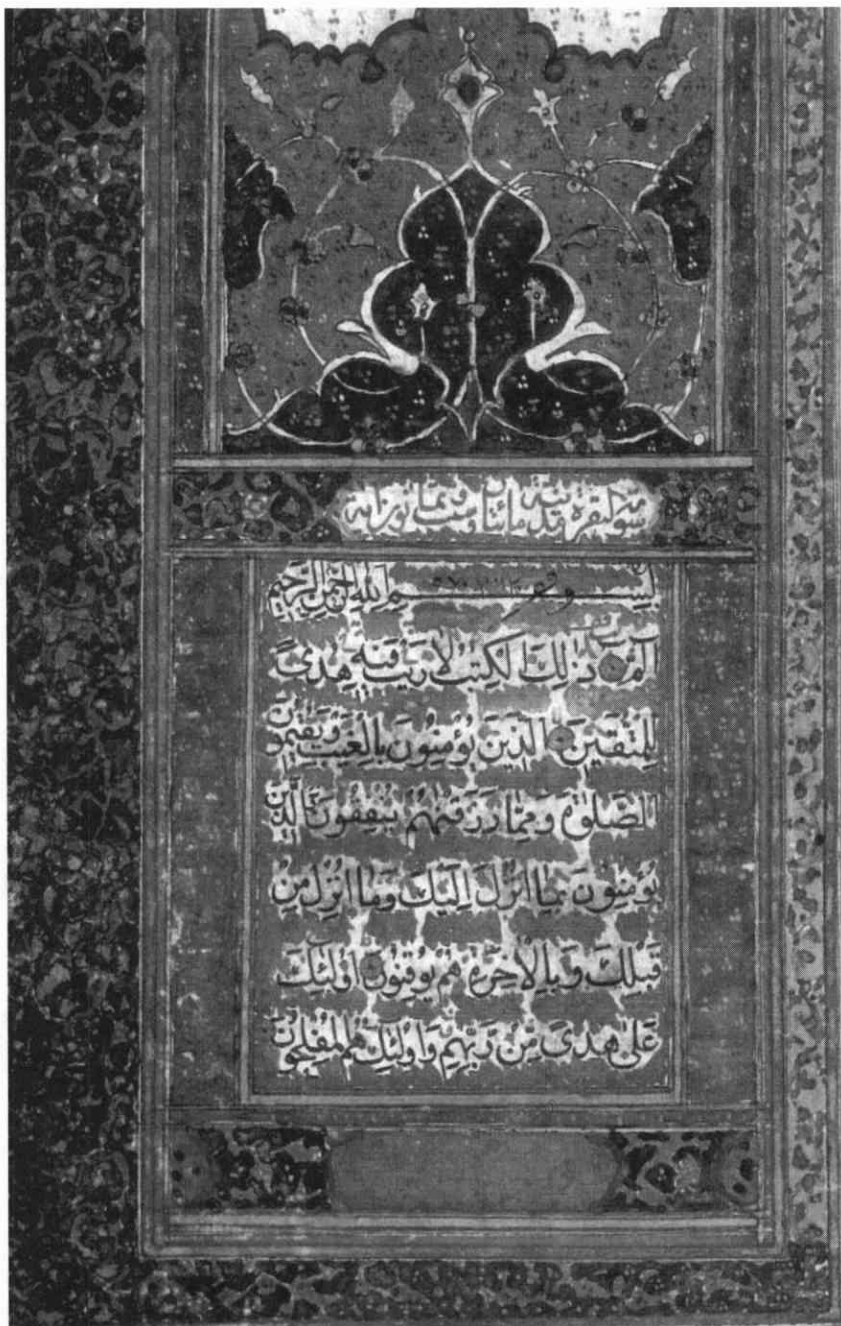 سورة البقرة مدنية مائتان وست وثمانون آية
بِسْمِ اللهِ الرَّحْمٰنِ الرَّحِيْمِ
الٓمٓ ذٰلِكَ الْكِتٰبُ لَا رَيْبَ فِيْهِ هُدًى
لِلْمُتَّقِيْنَ الَّذِيْنَ يُؤْمِنُوْنَ بِالْغَيْبِ وَيُقِيْمُوْنَ
الصَّلٰوةَ وَمِمَّا رَزَقْنٰهُمْ يُنْفِقُوْنَ وَالَّذِيْنَ
يُؤْمِنُوْنَ بِمَا اُنْزِلَ اِلَيْكَ وَمَا اُنْزِلَ مِنْ
قَبْلِكَ وَبِالْاٰخِرَةِ هُمْ يُوْقِنُوْنَ اُولٰئِكَ
عَلٰى هُدًى مِنْ رَبِّهِمْ وَاُولٰئِكَ هُمُ الْمُفْلِحُوْنَ